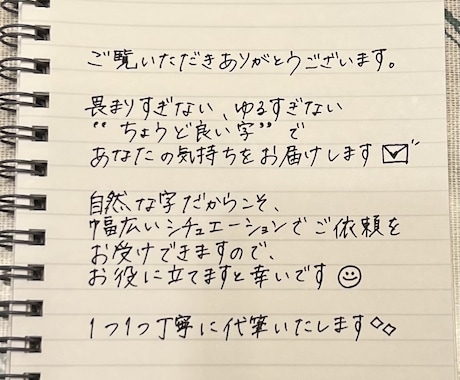 ご覧いただきありがとうございます。
畏まりすぎない、ゆるすぎない
“ちょうど良い字”で
あなたの気持ちをお届けします
自然な字だからこそ、
幅広いシチュエーションでご依頼を
お受けできますので、
お役に立てますと幸いです
1つ1つ丁寧に代筆いたします